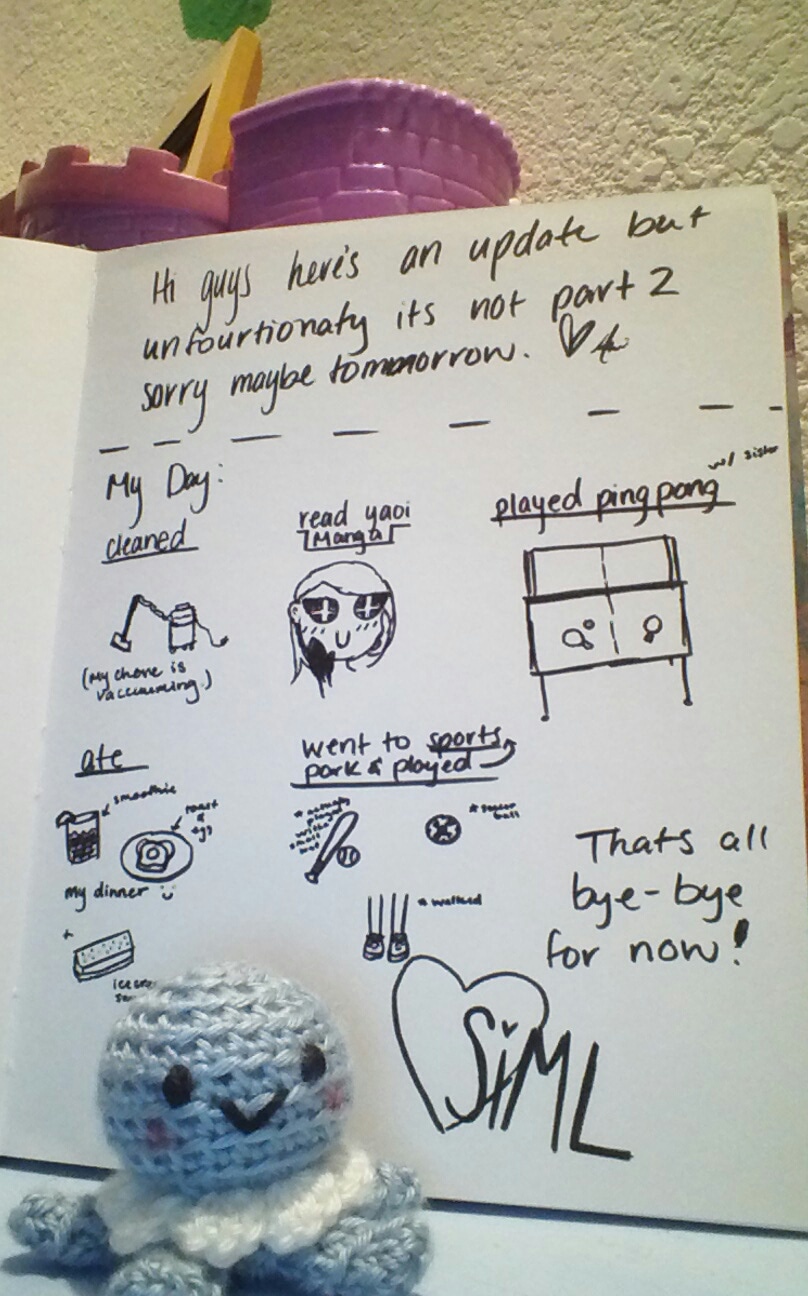 Hi guys here's an update but
unfourtionaty its not part 2
sorry maybe tommorrow.
My Day:
cleaned
(My chore is
vaccuuming.)
read yaoi
Manga
played ping pong
w/ sister
ate
smoothie
toast
&
egs
my dinner
+
ice cre
went to sports
park & played
played
with
small
* soccer
ball
* walked
Thats all
bye-bye
for now!
SiML